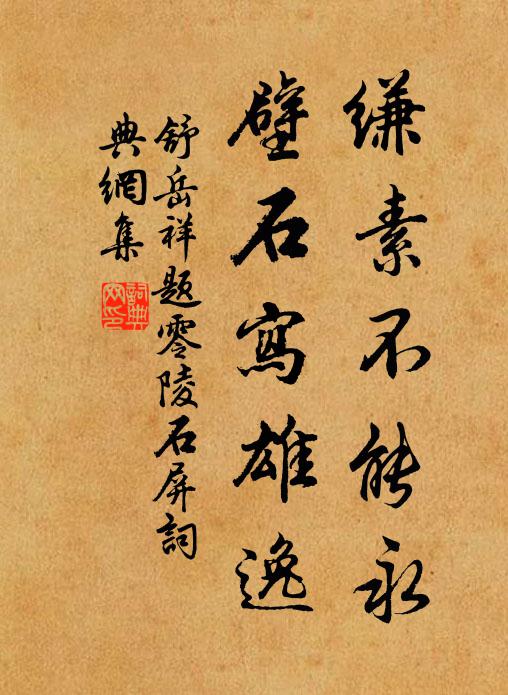 縑素不能永
壁石寫雄逸
舒岳祥題零陵石屏詞
典網集
詞典網印